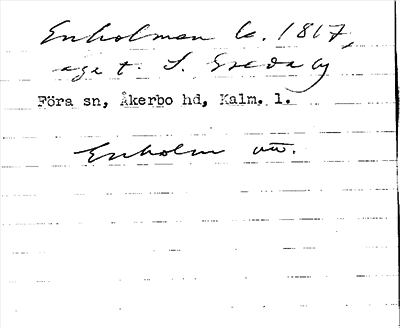 Enholmen Ca. 1817,
äget t. S. Greda by
Föra sn, Åkerbo hd, Kalm. l.
Enholm